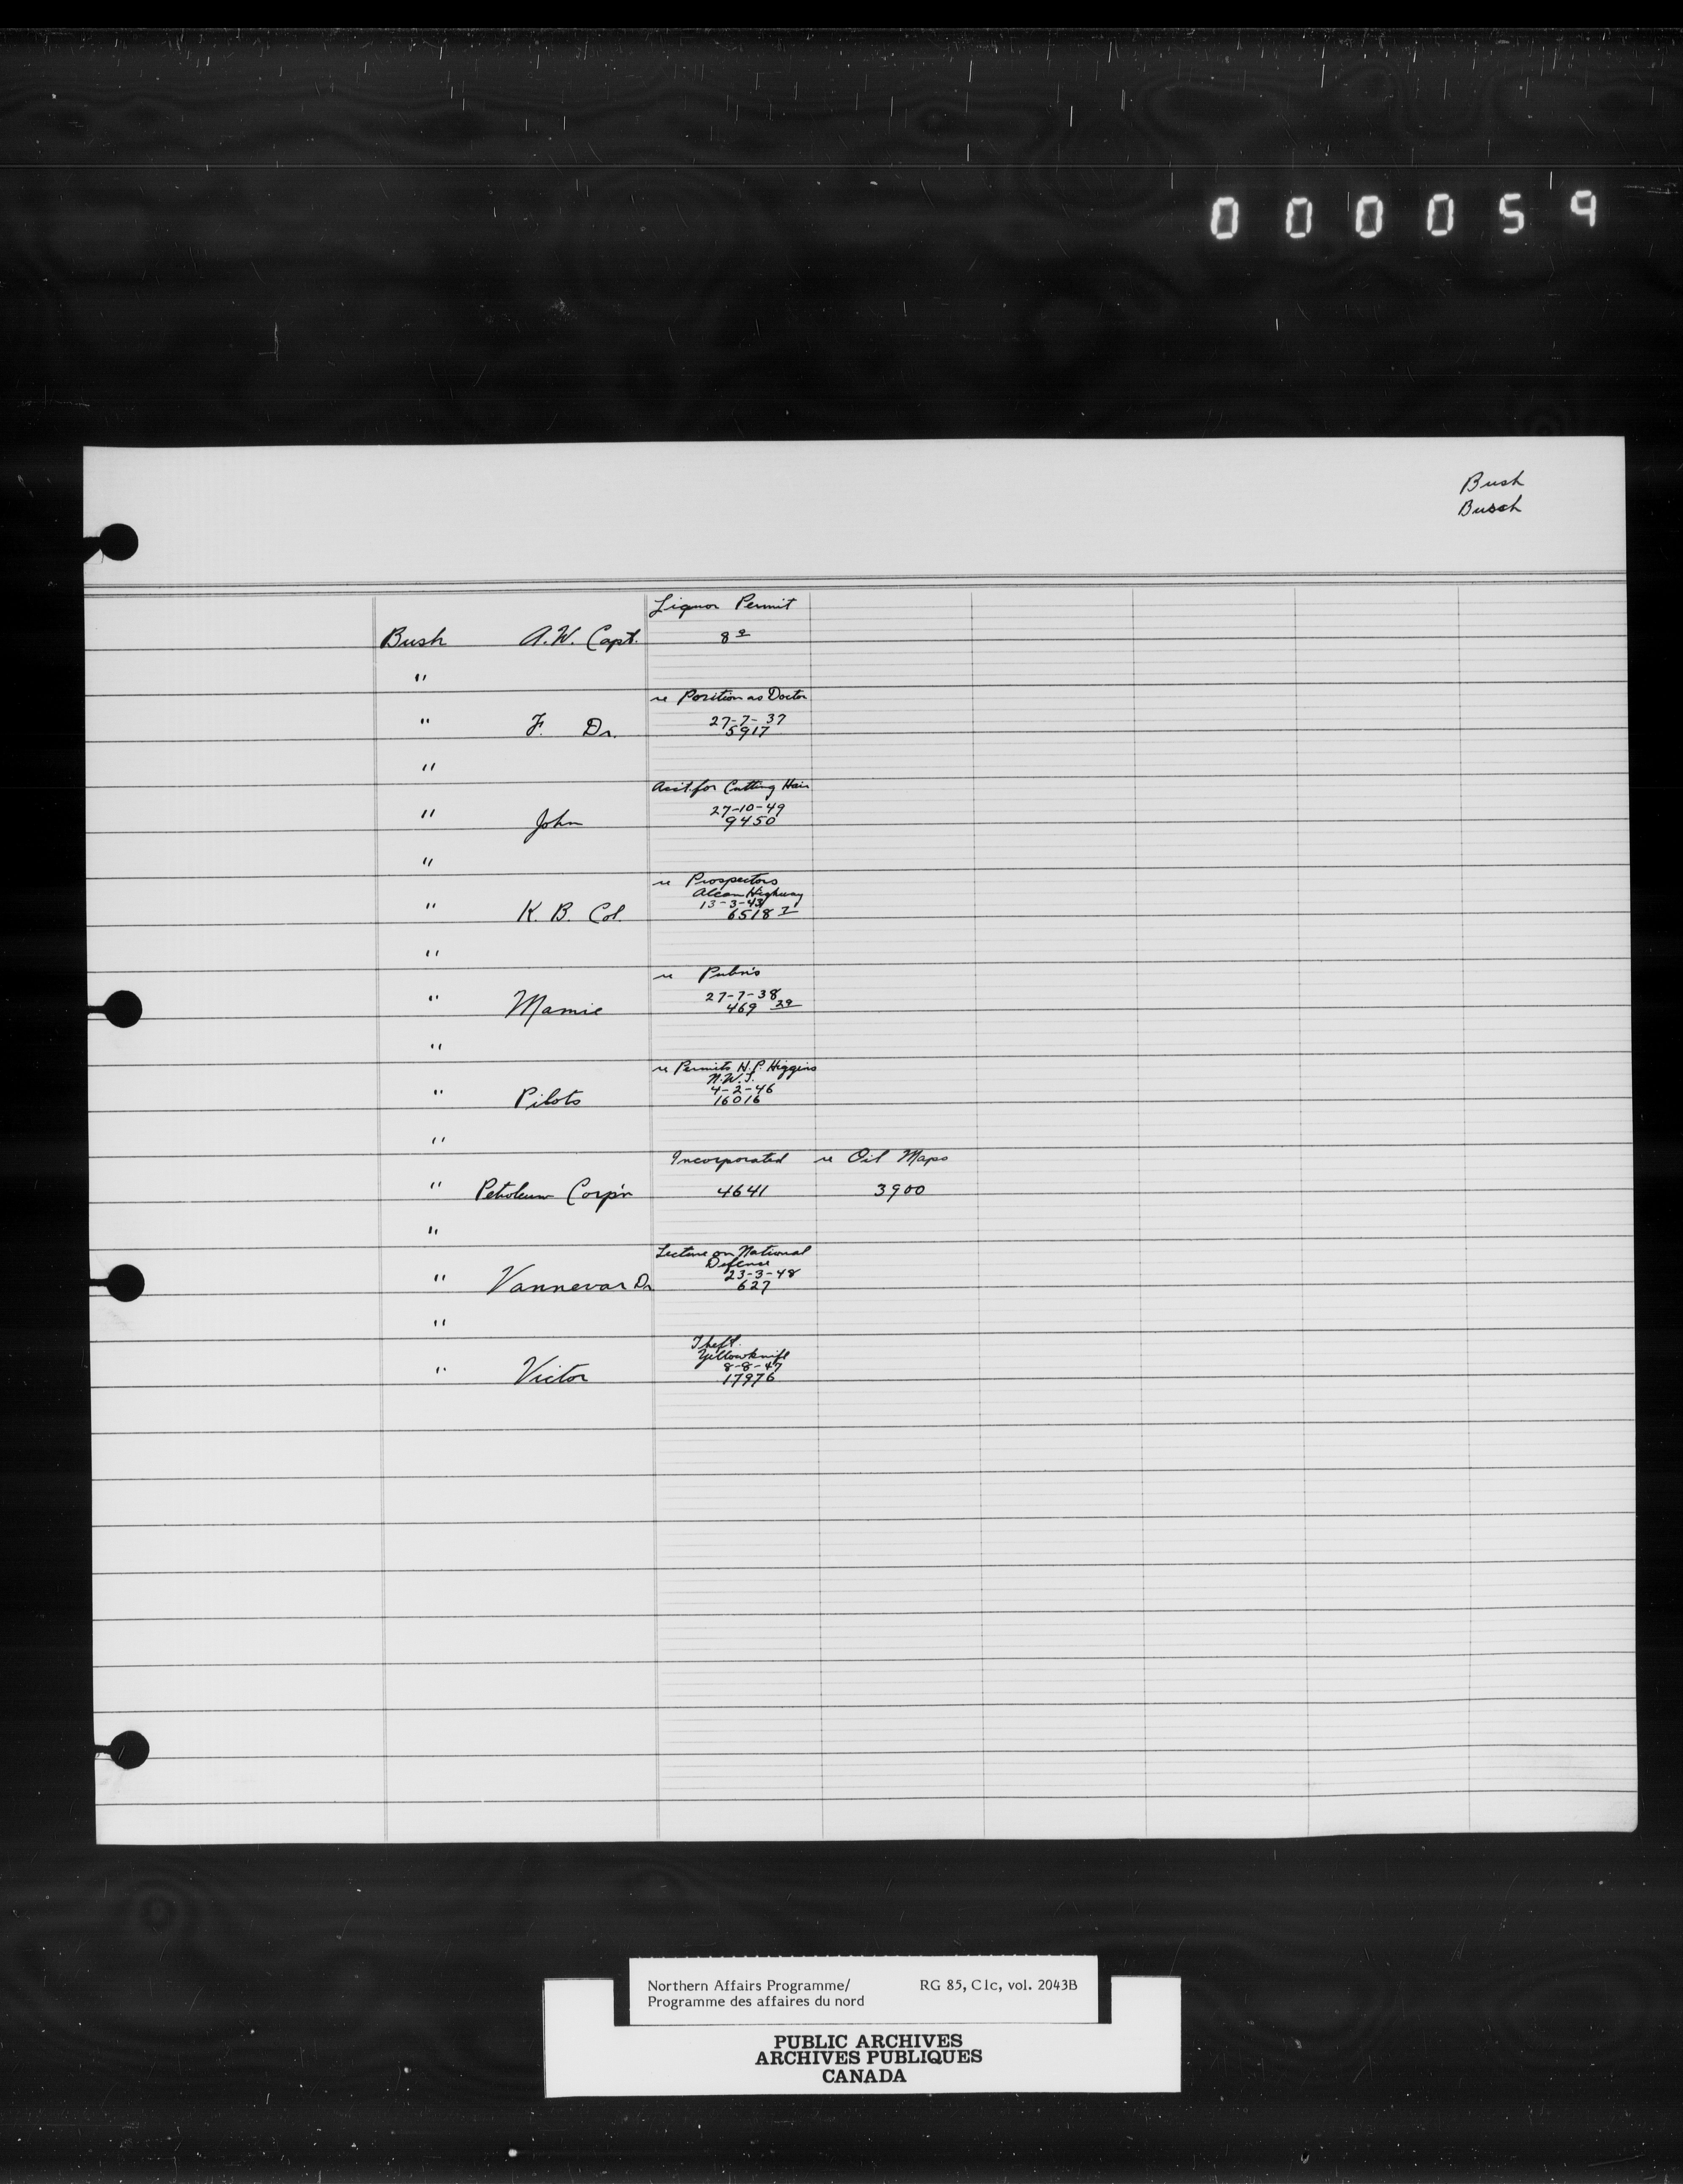 0 0 0 0 5 9
Bush
Busch
Liquor Permit
Bush A.W. Capt. 8 2
"
re Position as Doctor
" F. Dr. 27-7-37
5917
"
Acc't. for Cutting Hair
" John 27-10-49
9450
"
re Prospectors
Alcan Highway
13-3-43
" K. B. Col. 6518 7
"
re Pubn's
" Mamie 27-7-38
469 29
"
re Permits H.P. Higgins
N.W.T.
" Pilots 4-2-46
16016
"
Incorporated re Oil Maps
" Petroleum Corp'n 4641 3900
"
Lecture on National
Defense
" Vannevar Dr 23-3-48
627
"
Theft.
Yellowknife
" Victor 8-8-47
17976
Northern Affairs Programme/ RG 85, C1c, vol. 2043B
Programme des affaires du nord
PUBLIC ARCHIVES
ARCHIVES PUBLIQUES
CANADA